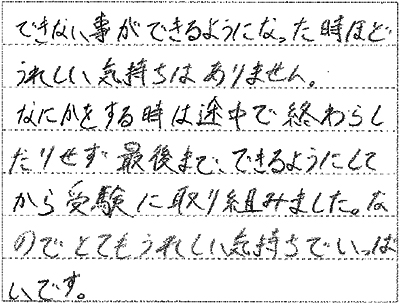 できない事ができるようになった時ほど
うれしい気持ちはありません。
なにかをする時は途中で終わらし
たりせず最後まで、できるようにして
から受験に取り組みました。な
のでとてもうれしい気持ちでいっぱ
いです。